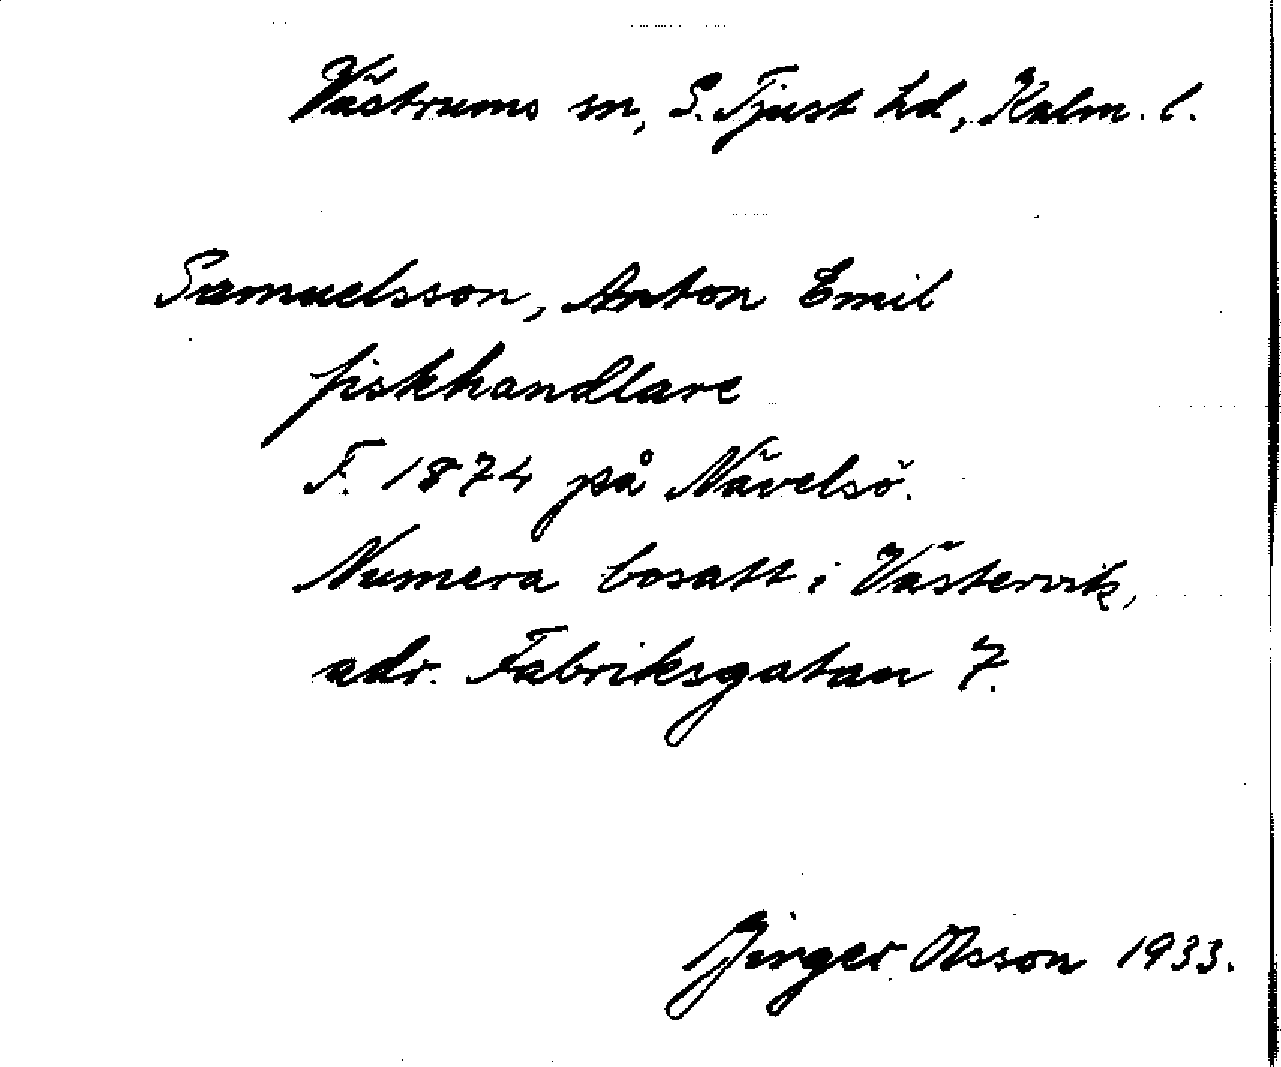 Västrums sn, S. Tjust hd, Kalm. l.
Samuelsson, Anton Emil
fiskhandlare
F. 1874 på Nävelsö.
Numera bosatt i Västervik,
adr. Fabriksgatan 7.
Birger Olsson 1933.